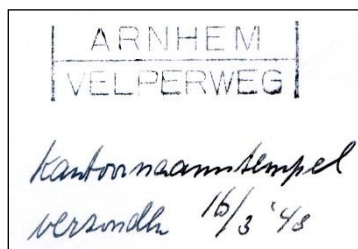 ARNHEM
VELPERWEG
kantoornaamstempel
verzonden 16/3 '48